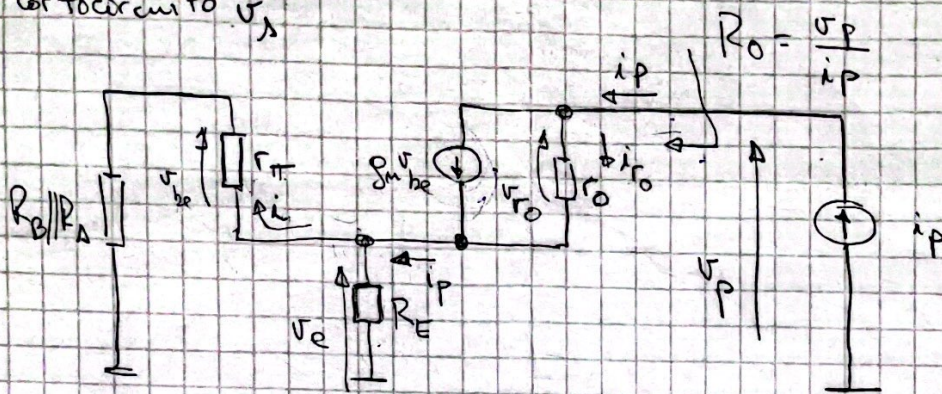 cortocircuito v_s
R_o = v_p / i_p
i_p
R_B||R_s
v_be
r_π
i
g_m v_be
v_ro
r_o
i_ro
v_p
i_p
i_p
v_e
R_E